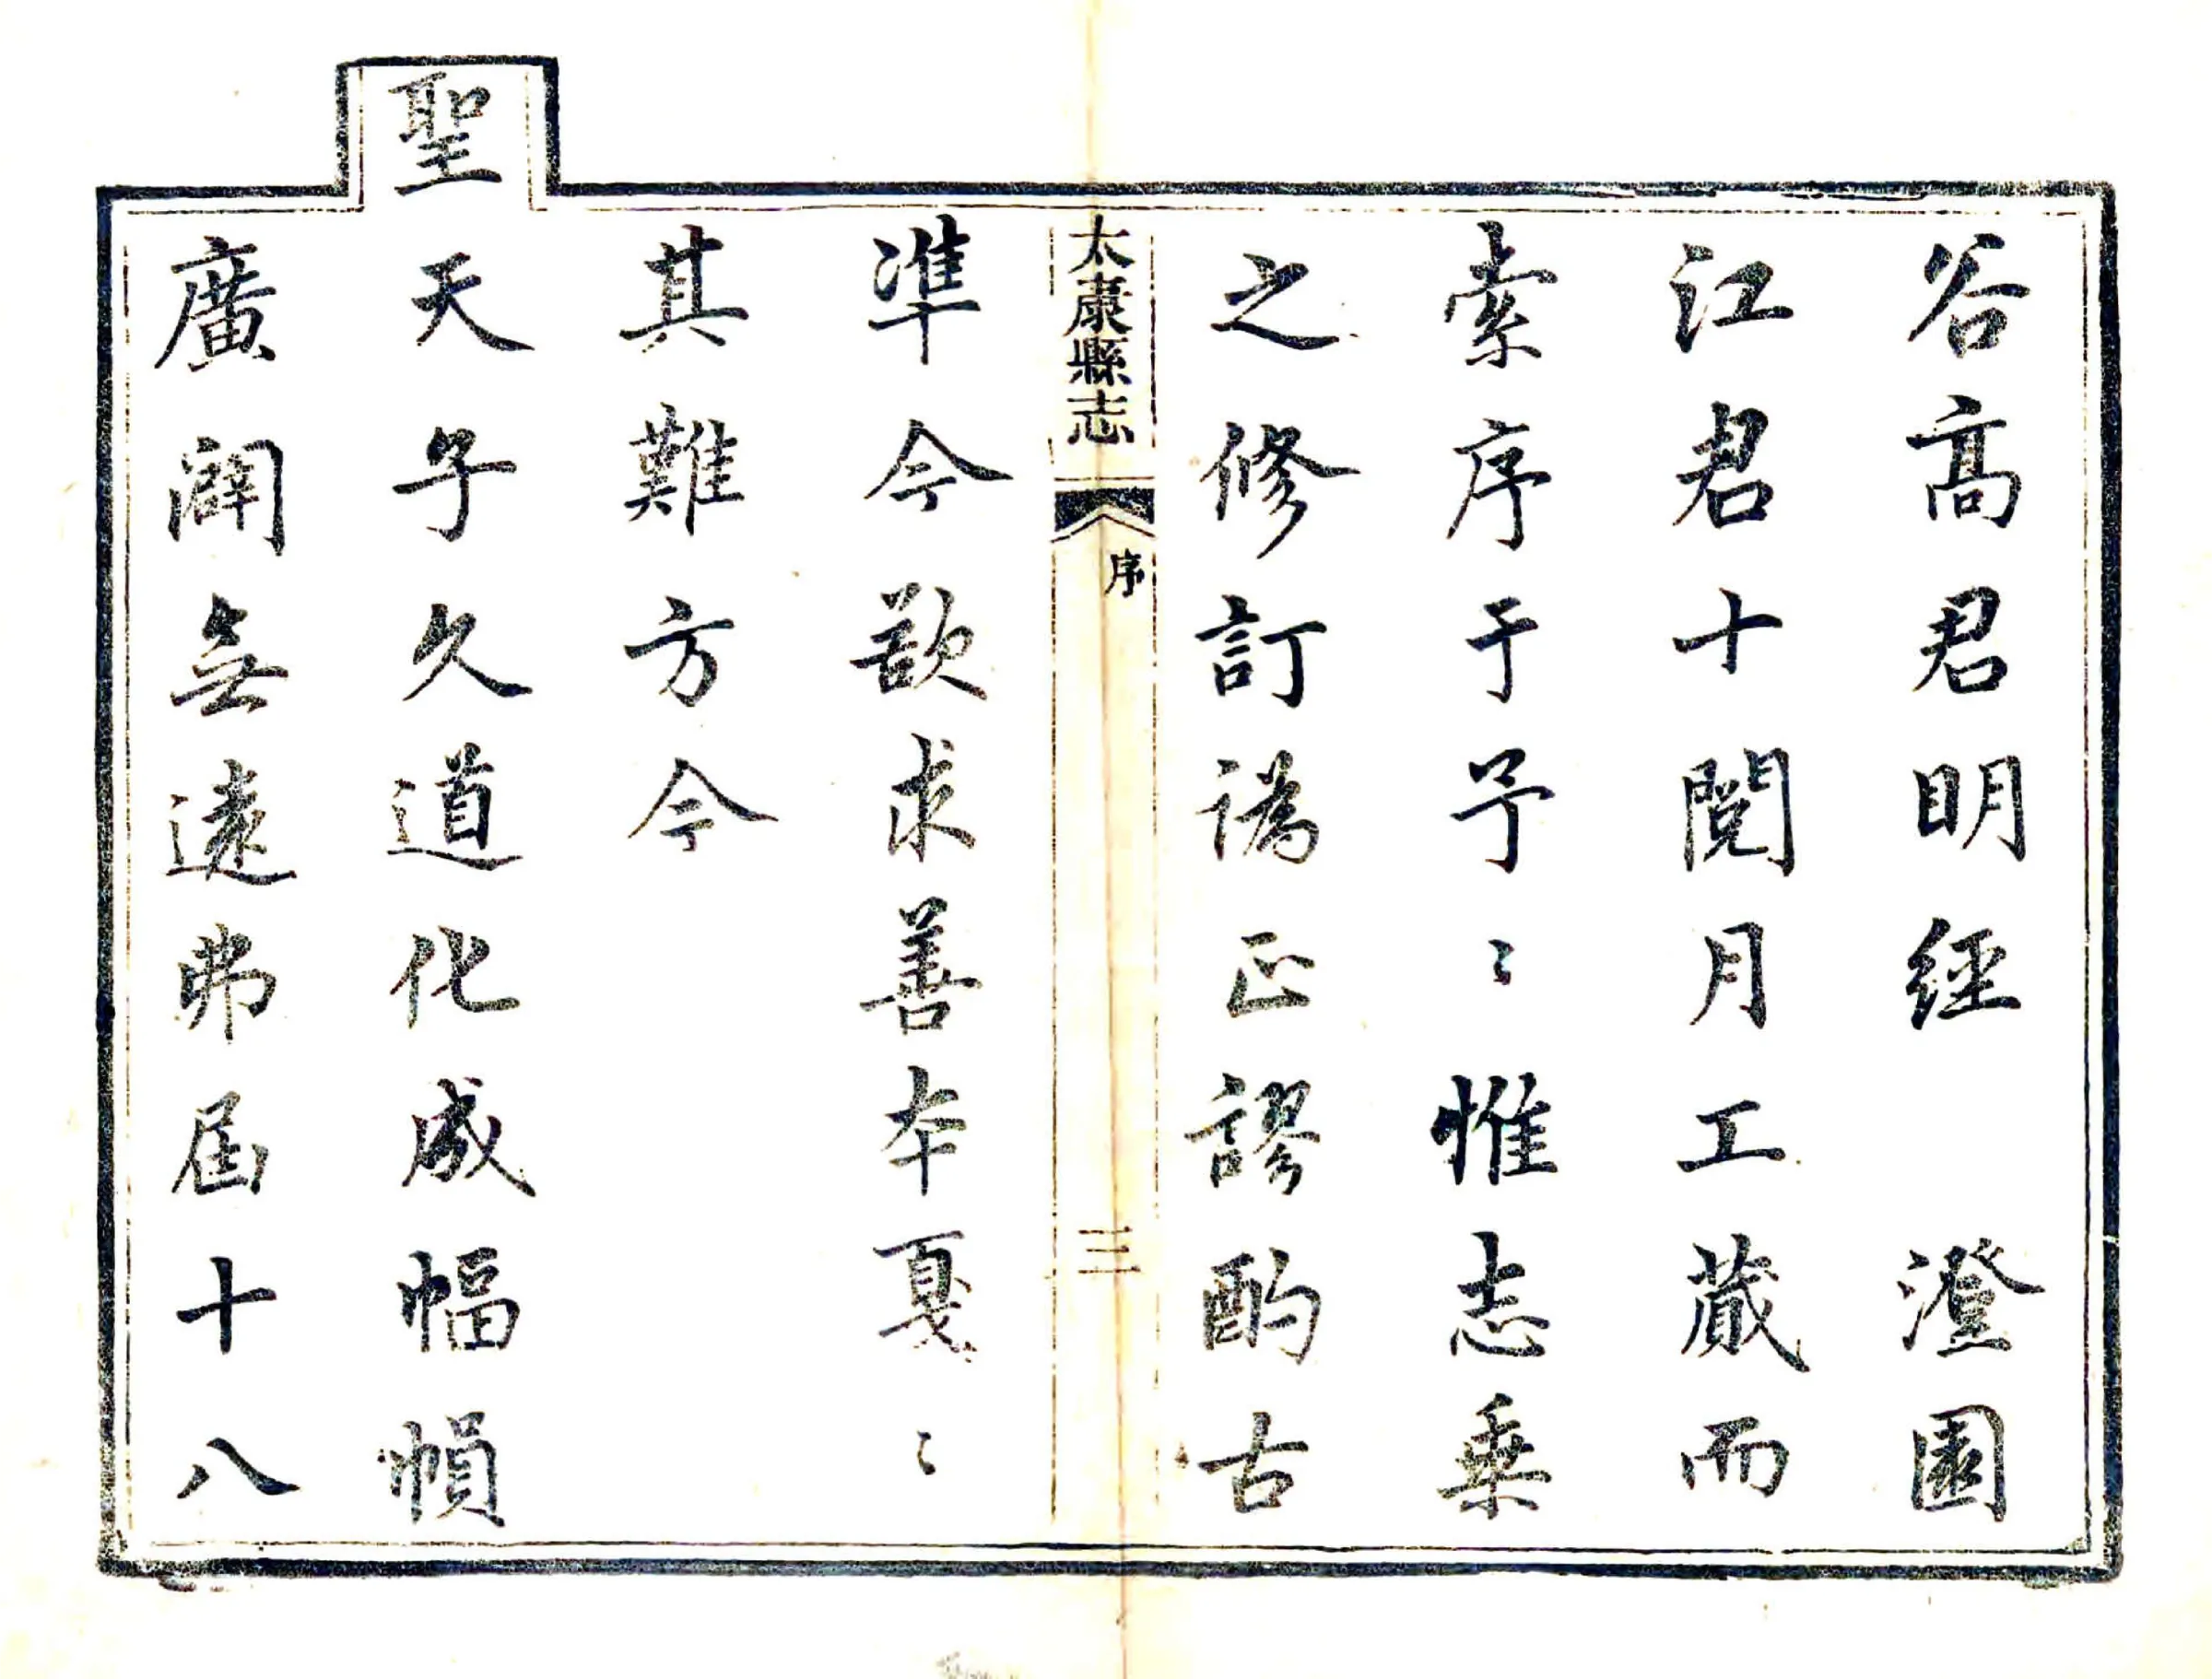 谷高君明經　澄園
江君十閱月工蕆而
索序于予〻惟志乗
之修訂譌正謬酌古
太康縣志
序
三
準今欲求善本戛〻
其難方今
聖天子久道化成幅幀
廣闢無遠弗届十八